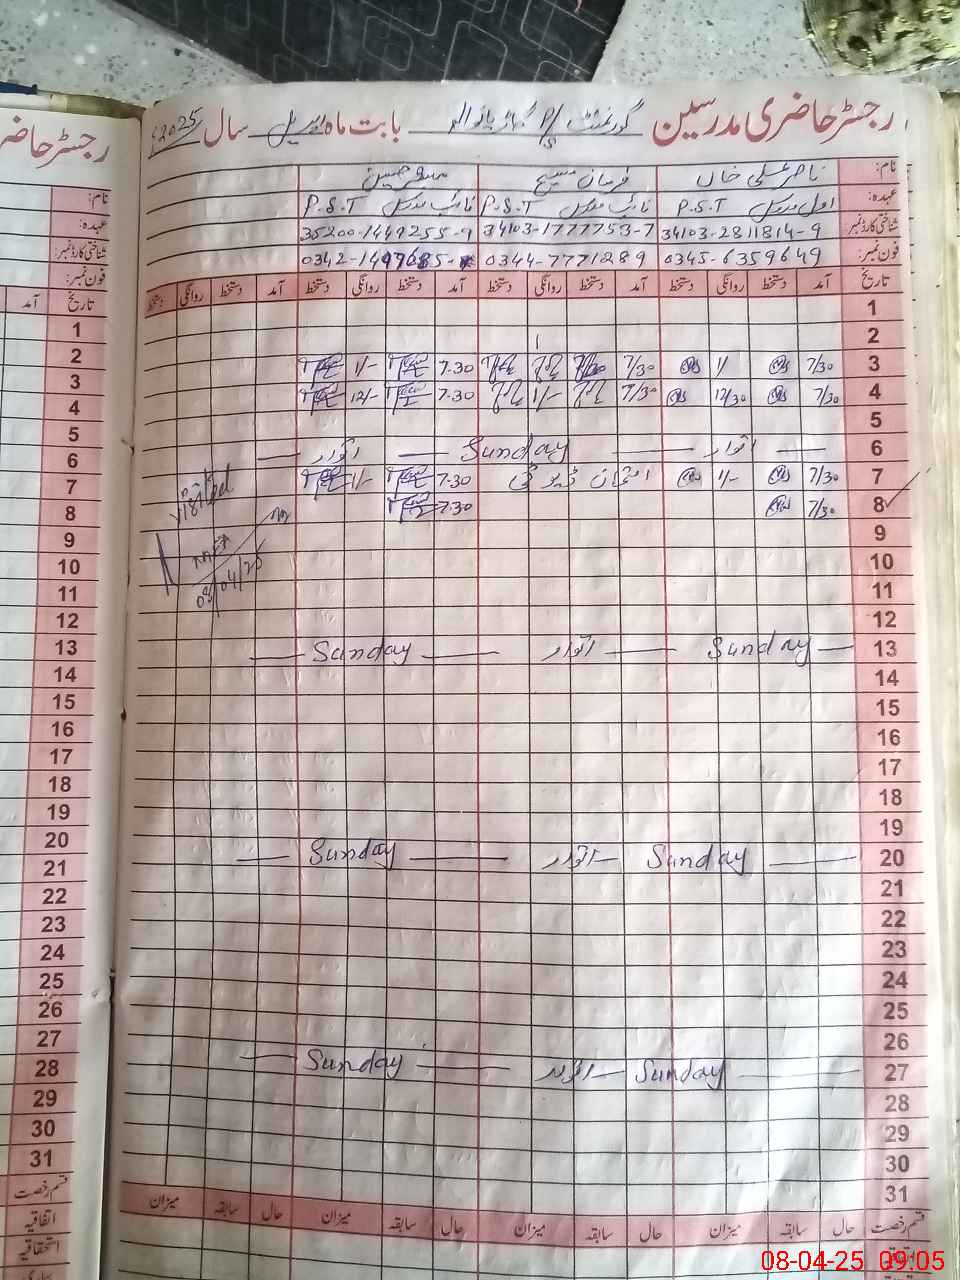 رجسٹر حاضری مدرسین گورنمنٹ P/S بابت ماہ اپریل سال 2025ء
نام: ناصر علی خاں فرمان مسیح
عہدہ: اول مدرس P.S.T نائب مدرس P.S.T نائب مدرس P.S.T
شناختی کارڈ نمبر: 34103-2811814-9 34103-1777753-7 35200-1449255-9
فون نمبر: 0345-6359649 0344-7771289
تاریخ آمد دستخط روانگی دستخط آمد دستخط روانگی دستخط آمد دستخط روانگی دستخط آمد دستخط روانگی دستخط
1
2
3 7/30 1/ 7/30 7.30 1/-
4 7/30 12/30 7/30 1/- 7.30 12/-
5
6 — اتوار — Sunday — اتوار —
7 7/30 1/- امتحان ڈیوٹی 7.30 1/-
8 7/30 7.30
Visited
08/04/25
9
10
11
12
13 — Sunday — اتوار — Sunday —
14
15
16
17
18
19
20 — Sunday اتوار — Sunday —
21
22
23
24
25
26
27 — Sunday اتوار — Sunday —
28
29
30
31
قسم رخصت حال سابقہ میزان حال سابقہ میزان حال سابقہ میزان حال سابقہ میزان
رجسٹر حاضر
نام:
عہدہ:
شناختی کارڈ نمبر:
فون نمبر:
تاریخ آمد
1
2
3
4
5
6
7
8
9
10
11
12
13
14
15
16
17
18
19
20
21
22
23
24
25
26
27
28
29
30
31
قسم رخصت
اتفاقیہ
استحقاقیہ
08-04-25 09:05